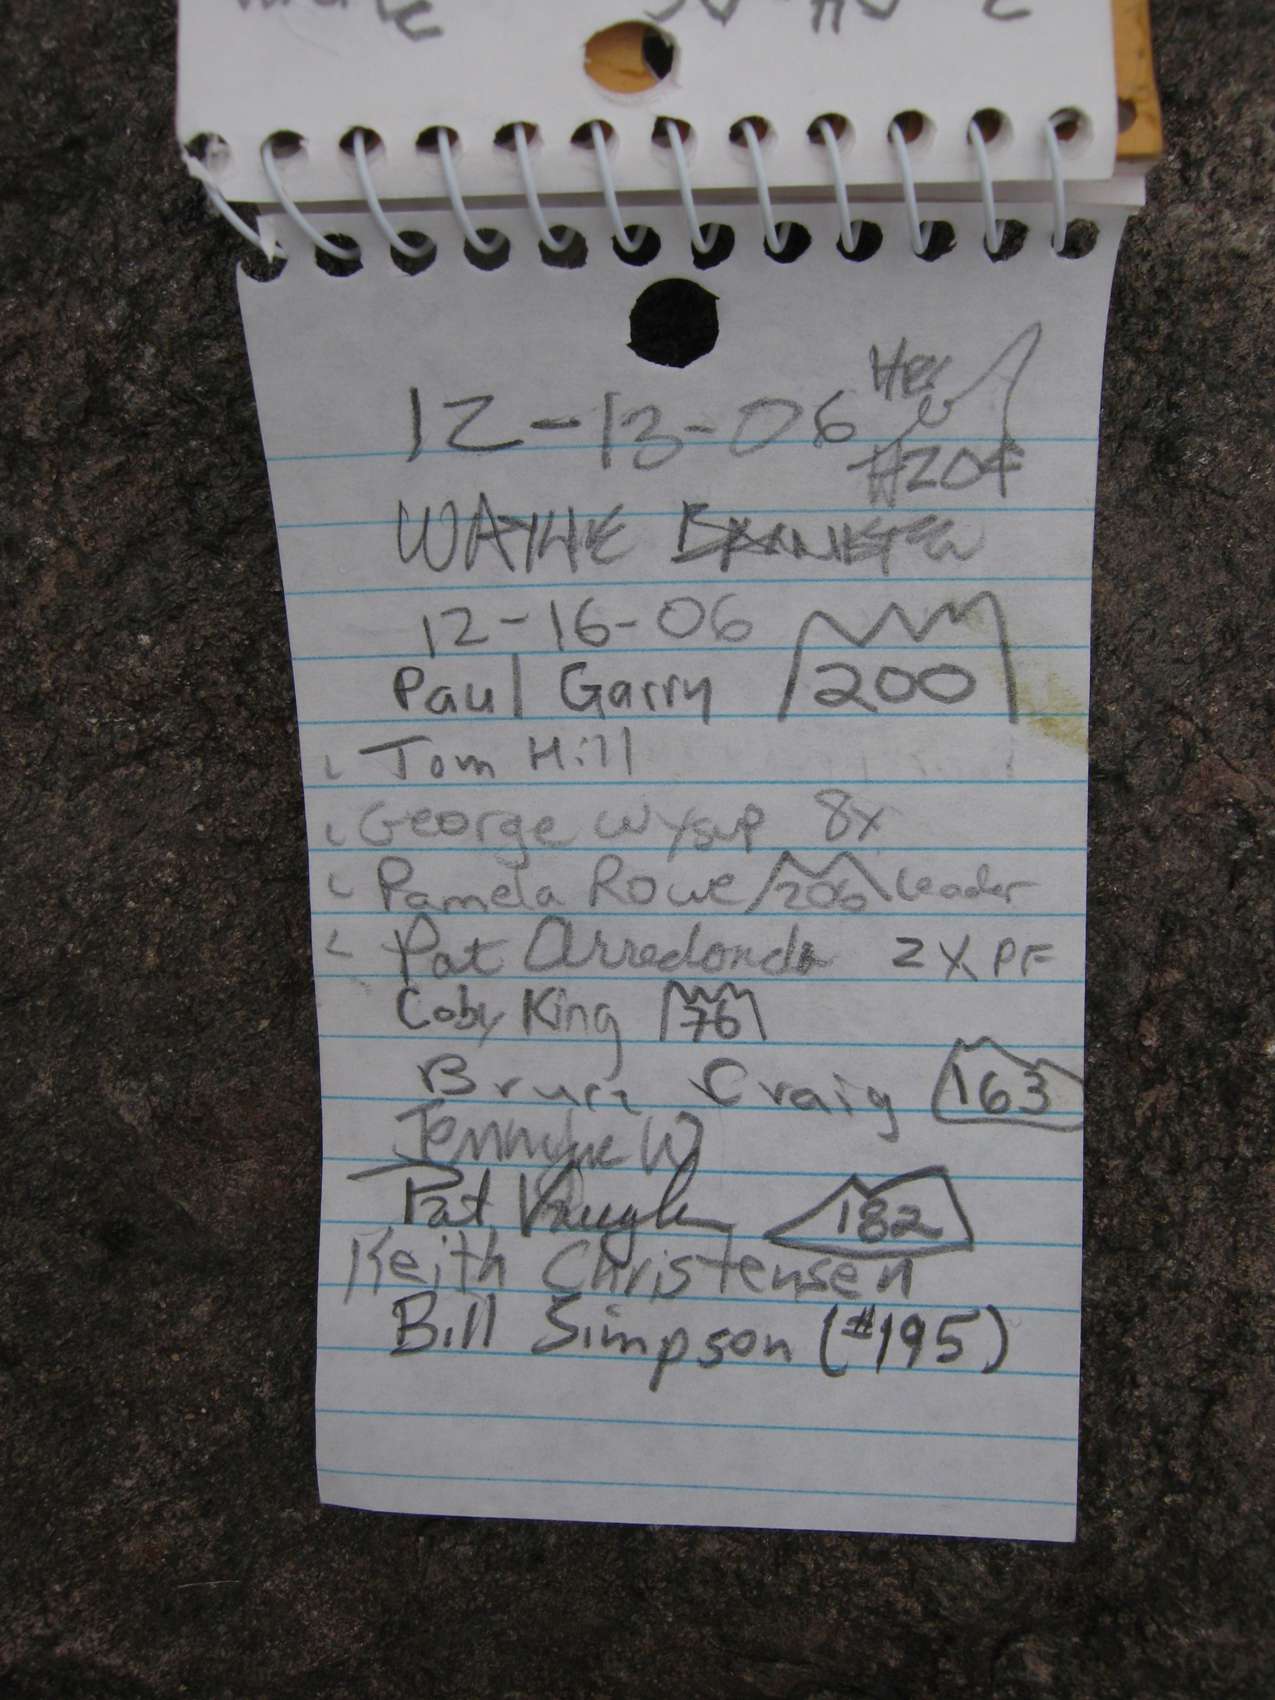 12-13-06
#204
WAYNE
12-16-06
Paul Garry 200
Tom Hill
George Wysup 8x
Pamela Rowe 206 Leader
Pat Arredondo 2X PF
Coby King 76
Bruce Craig 163
W
Pat Vaughn 182
Keith Christensen
Bill Simpson (#195)